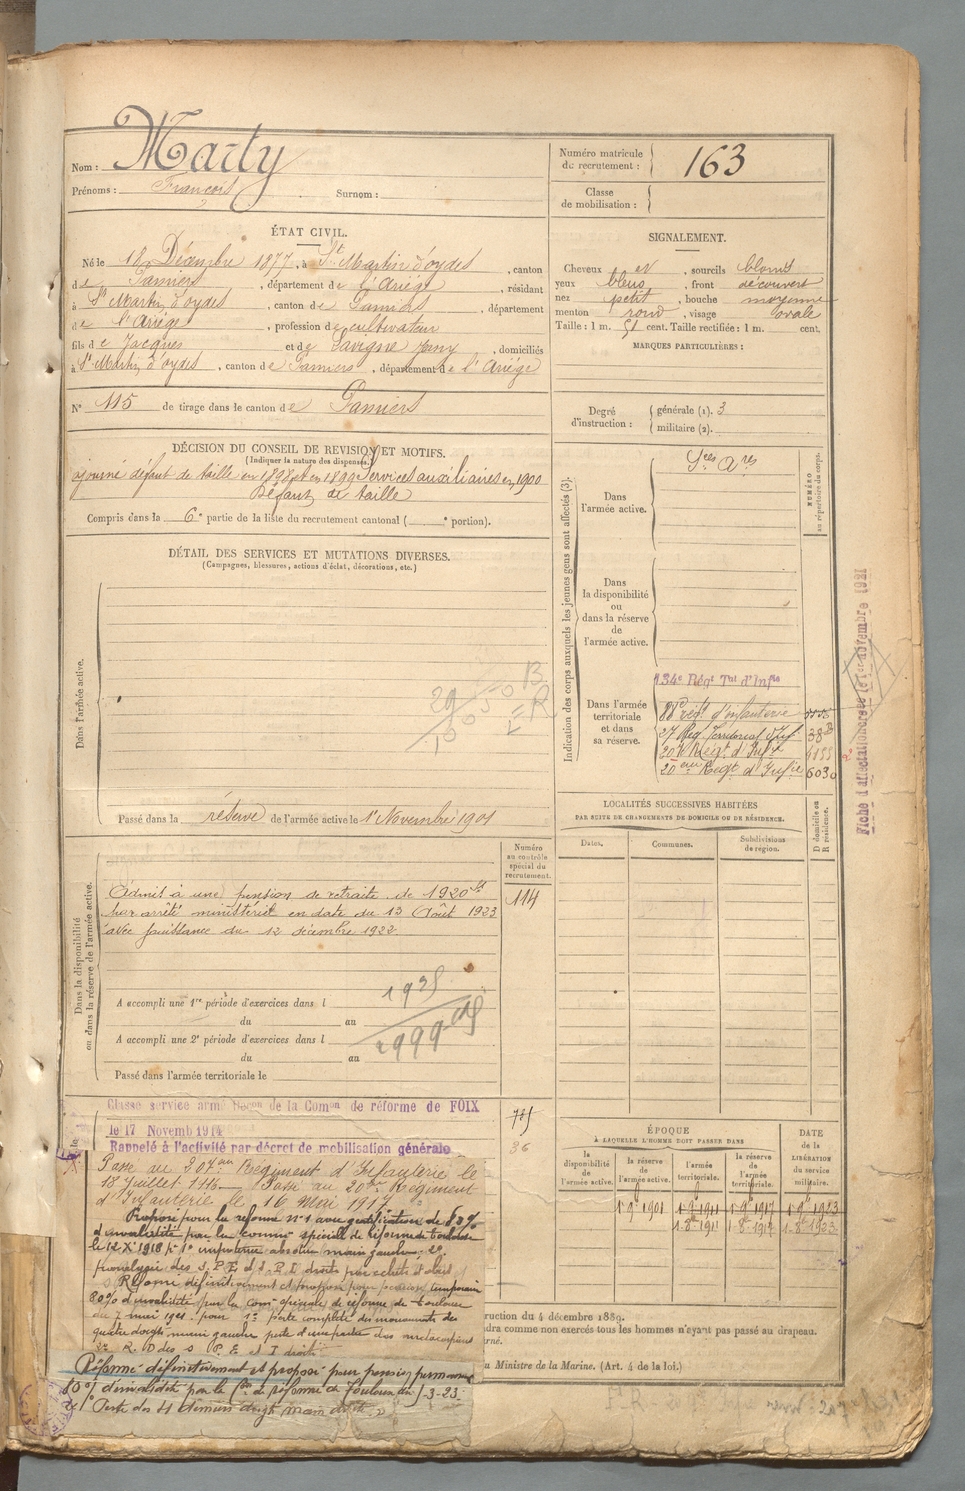 Nom : Marty
Prénoms : François Surnom :
Numéro matricule
de recrutement : 163
Classe
de mobilisation :
ÉTAT CIVIL.
Né le 18 Décembre 1877, à St Martin d'oydes, canton
de Pamiers, département de l'Ariège, résidant
à St Martin d'oydes, canton de Pamiers, département
de l'Ariège, profession de cultivateur
fils de Jacques et de Lavigne Jany, domiciliés
à St Martin d'oydes, canton de Pamiers, département de l'Ariège
N° 115 de tirage dans le canton de Pamiers
SIGNALEMENT.
Cheveux et, sourcils blonds
yeux bleus, front découvert
nez petit, bouche moyenne
menton rond, visage ovale
Taille : 1 m. 51 cent. Taille rectifiée : 1 m. cent.
MARQUES PARTICULIÈRES :
Degré
d'instruction : générale (1). 3
militaire (2).
DÉCISION DU CONSEIL DE REVISION ET MOTIFS.
(Indiquer la nature des dispenses.)
ajourné défaut de taille en 1898 et en 1899 Services auxiliaires en 1900
Défaut de taille
Compris dans la 6e partie de la liste du recrutement cantonal ( e portion).
DÉTAIL DES SERVICES ET MUTATIONS DIVERSES.
(Campagnes, blessures, actions d'éclat, décorations, etc.)
Dans l'armée active.
Passé dans la réserve de l'armée active le 1er Novembre 1901
Indication des corps auxquels les jeunes gens sont affectés (3).
NUMÉRO
au répertoire du corps.
Dans
l'armée active.
Sces Ares
Dans
la disponibilité
ou
dans la réserve
de
l'armée active.
Dans l'armée
territoriale
et dans
sa réserve.
134e Régt Tal d'Infie
88e régt d'infanterie
Reg. Territorial d'Inf. 38
207e Régt d'Infie
20eme Régt d'Infie 6030
Fiche d'affectation créée le 1er novembre 1921
LOCALITÉS SUCCESSIVES HABITÉES
PAR SUITE DE CHANGEMENTS DE DOMICILE OU DE RÉSIDENCE.
Dates. Communes. Subdivisions
de région.
D domicile ou
R résidence.
Numéro
au contrôle
spécial du
recrutement.
114
Dans la disponibilité
ou dans la réserve de l'armée active.
Admis à une pension de retraite de 1920 fs
par arrêté ministériel en date du 13 Août 1923
avec jouissance du 12 décembre 1922
A accompli une 1re période d'exercices dans l
du au
A accompli une 2e période d'exercices dans l
du au
Passé dans l'armée territoriale le
Classé service armé Décon de la Comon de réforme de FOIX
le 17 Novemb 1914
Rappelé à l'activité par décret de mobilisation générale
Passé au 207eme Régiment d'Infanterie le
18 Juillet 1916 Passé au 20eme Régiment
d'Infanterie le 16 Mai 1917
Proposé pour la réforme n°1 avec gratification de
d'invalidité par la comon spéciale de réforme de Toulouse
le 12 Xbre 1918 pr 1° impotence absolue main gauche 2°
Réformé définitivement et proposé pour pension temporaire
80% d'invalidité par la comon spéciale de réforme de Toulouse
du 7 mai 1921 pour 1° perte complète des mouvements des
quatre doigts main gauche
Réformé définitivement et proposé pour pension permanente
80% d'invalidité par la Con de réforme de Toulouse du 3-23
1° Perte des 4 derniers doigts main
ÉPOQUE
À LAQUELLE L'HOMME DOIT PASSER DANS
la
disponibilité
de
l'armée active.
la réserve
de
l'armée active.
l'armée
territoriale.
la réserve
de
l'armée
territoriale.
DATE
de la
LIBÉRATION
du service
militaire.
1 9bre 1901 1 9bre 1911 1 9bre 1917 1 9bre 1923
1.8bre 1911 1.8bre 1917 1.8bre 1923
ruction du 4 décembre 1889.
dra comme non exercés tous les hommes n'ayant pas passé au drapeau.
erné.
u Ministre de la Marine. (Art. 4 de la loi.)